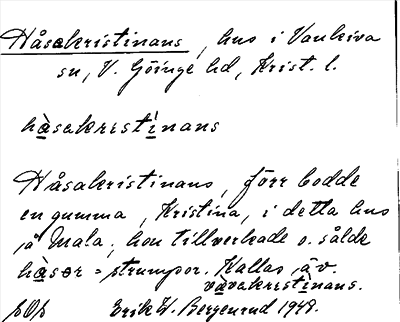 Håsakristinans, hus i Vankiva
sn, V. Göinge hd, Krist. l.
hàsakristìnans
Håsakristinans, förr bodde
en gumma, Kristina, i detta hus
på Mala; hon tillverkade o. sålde
hàser = strumpor. Kallas äv.
vàvakristìnans.
Erik W. Bergenrud 1948.